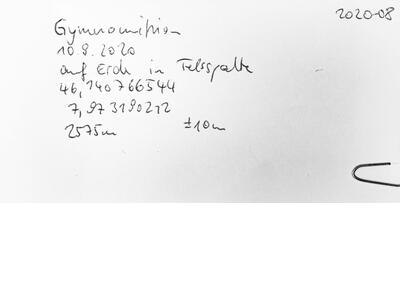 2020-08
Gymnomitrion
10.8.2020
auf Erde in Felsspalte
46,140766544
7,973190212
2575m ±10m